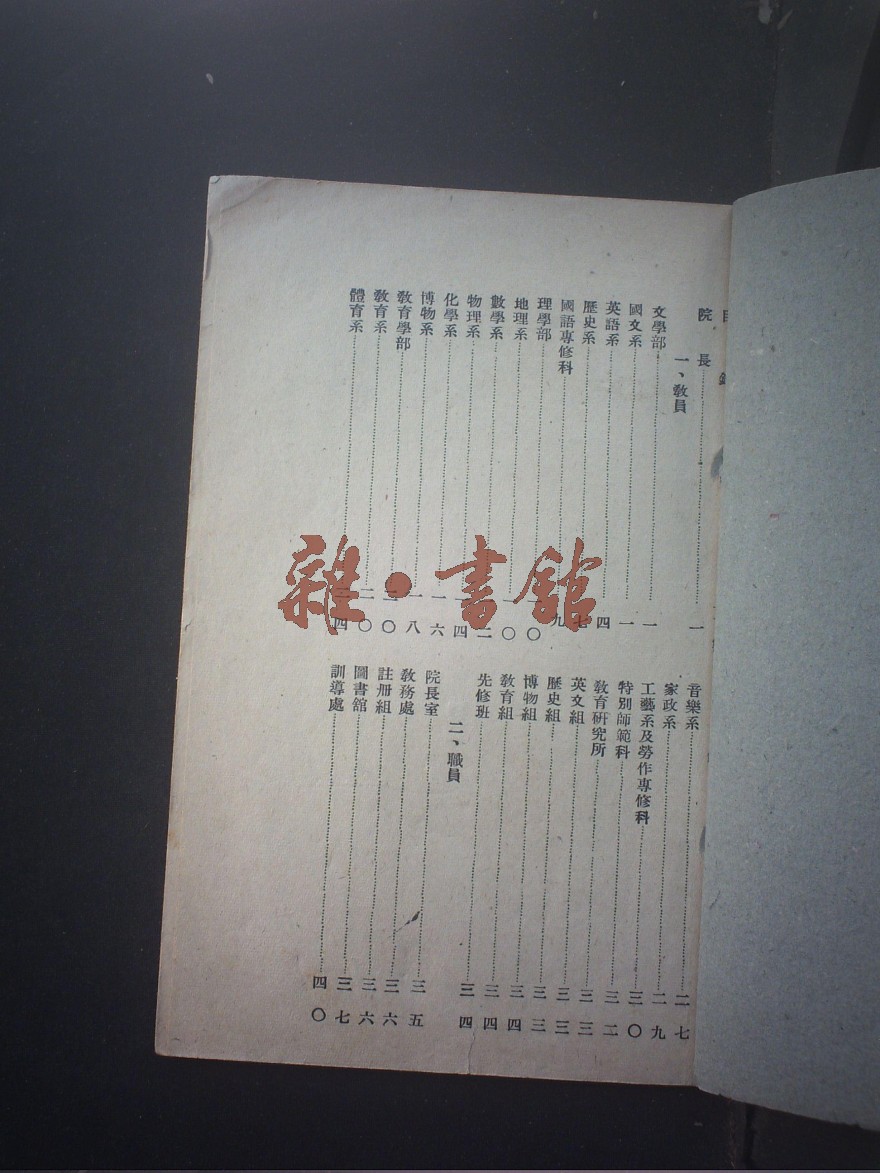 目錄
院長 一
一、教員
文學部 一
國文系 一
英語系 四
歷史系 七
國語專修科 九
理學部 一〇
地理系 一〇
數學系 一二
物理系 一四
化學系 一六
博物系 一八
教育學部 二〇
教育系 二〇
體育系 二四
音樂系 二七
家政系 二九
工藝系及勞作專修科 三〇
特別師範科 三二
教育研究所 三三
英文組 三三
歷史組 三三
博物組 三四
教育組 三四
先修班 三四
二、職員
院長室 三五
教務處 三六
註册組 三六
圖書館 三七
訓導處 四〇
雜·書館